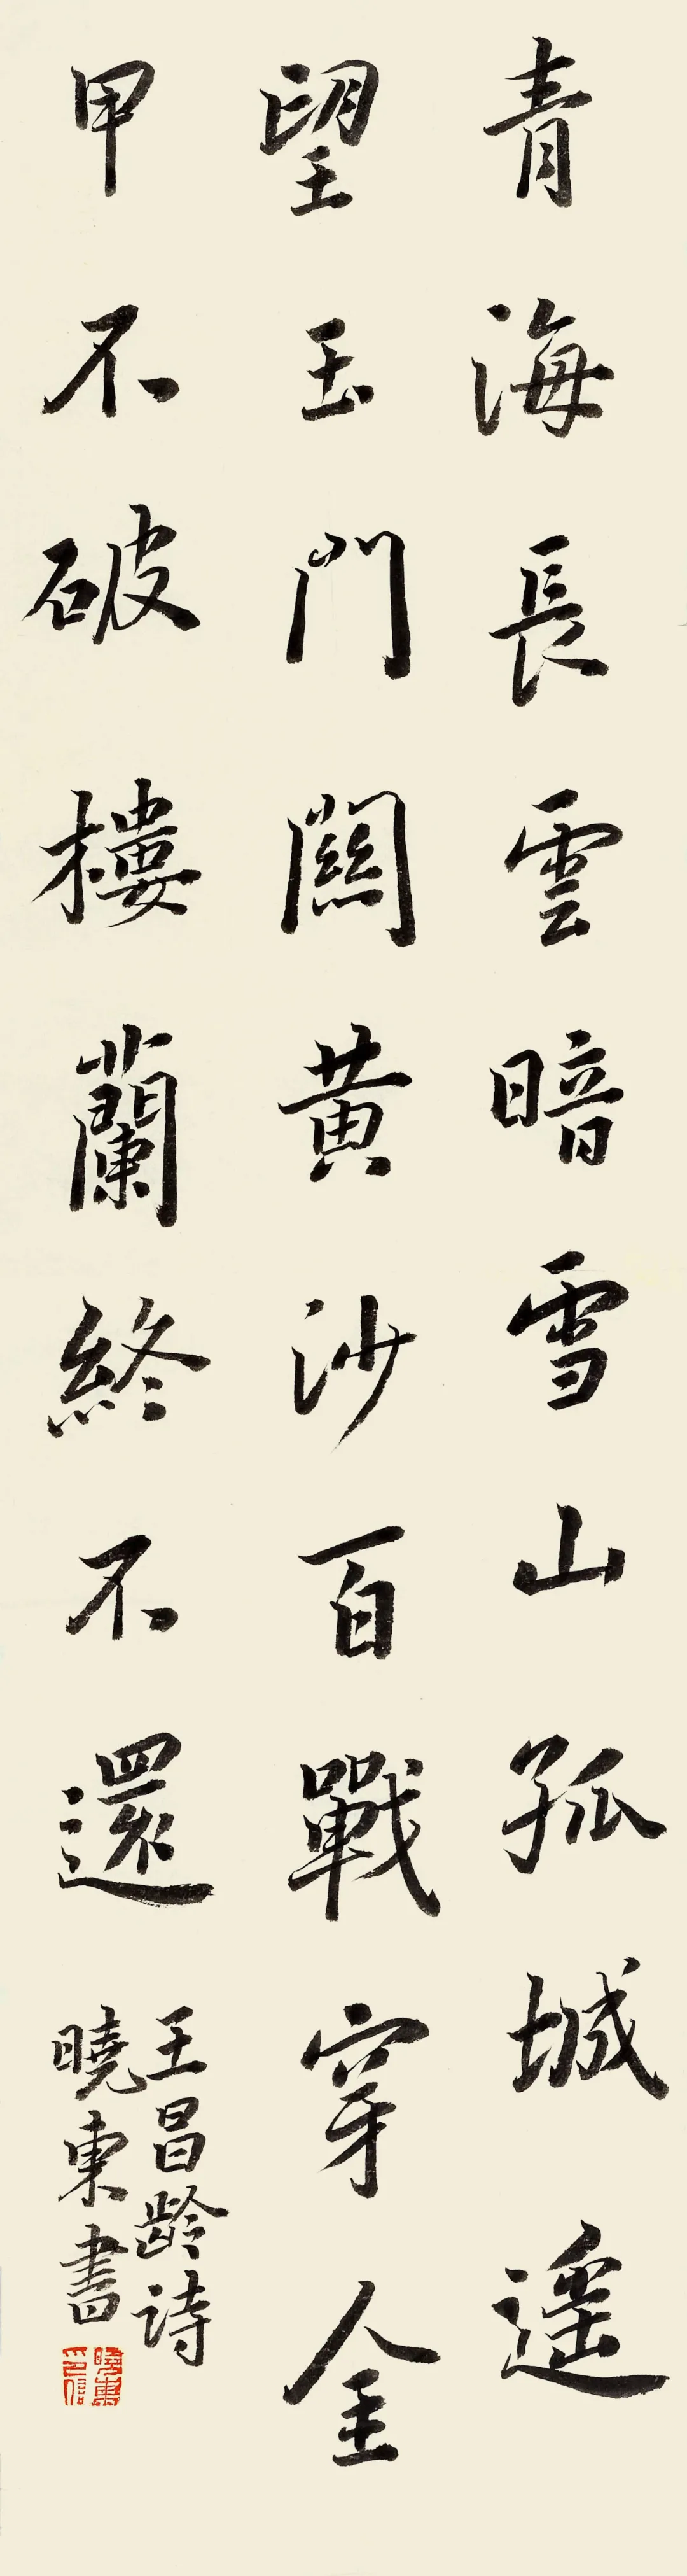 青海長雲暗雪山孤城遥
望玉門關黄沙百戰穿金
甲不破樓蘭終不還
王昌龄詩
曉東書
曉東印信